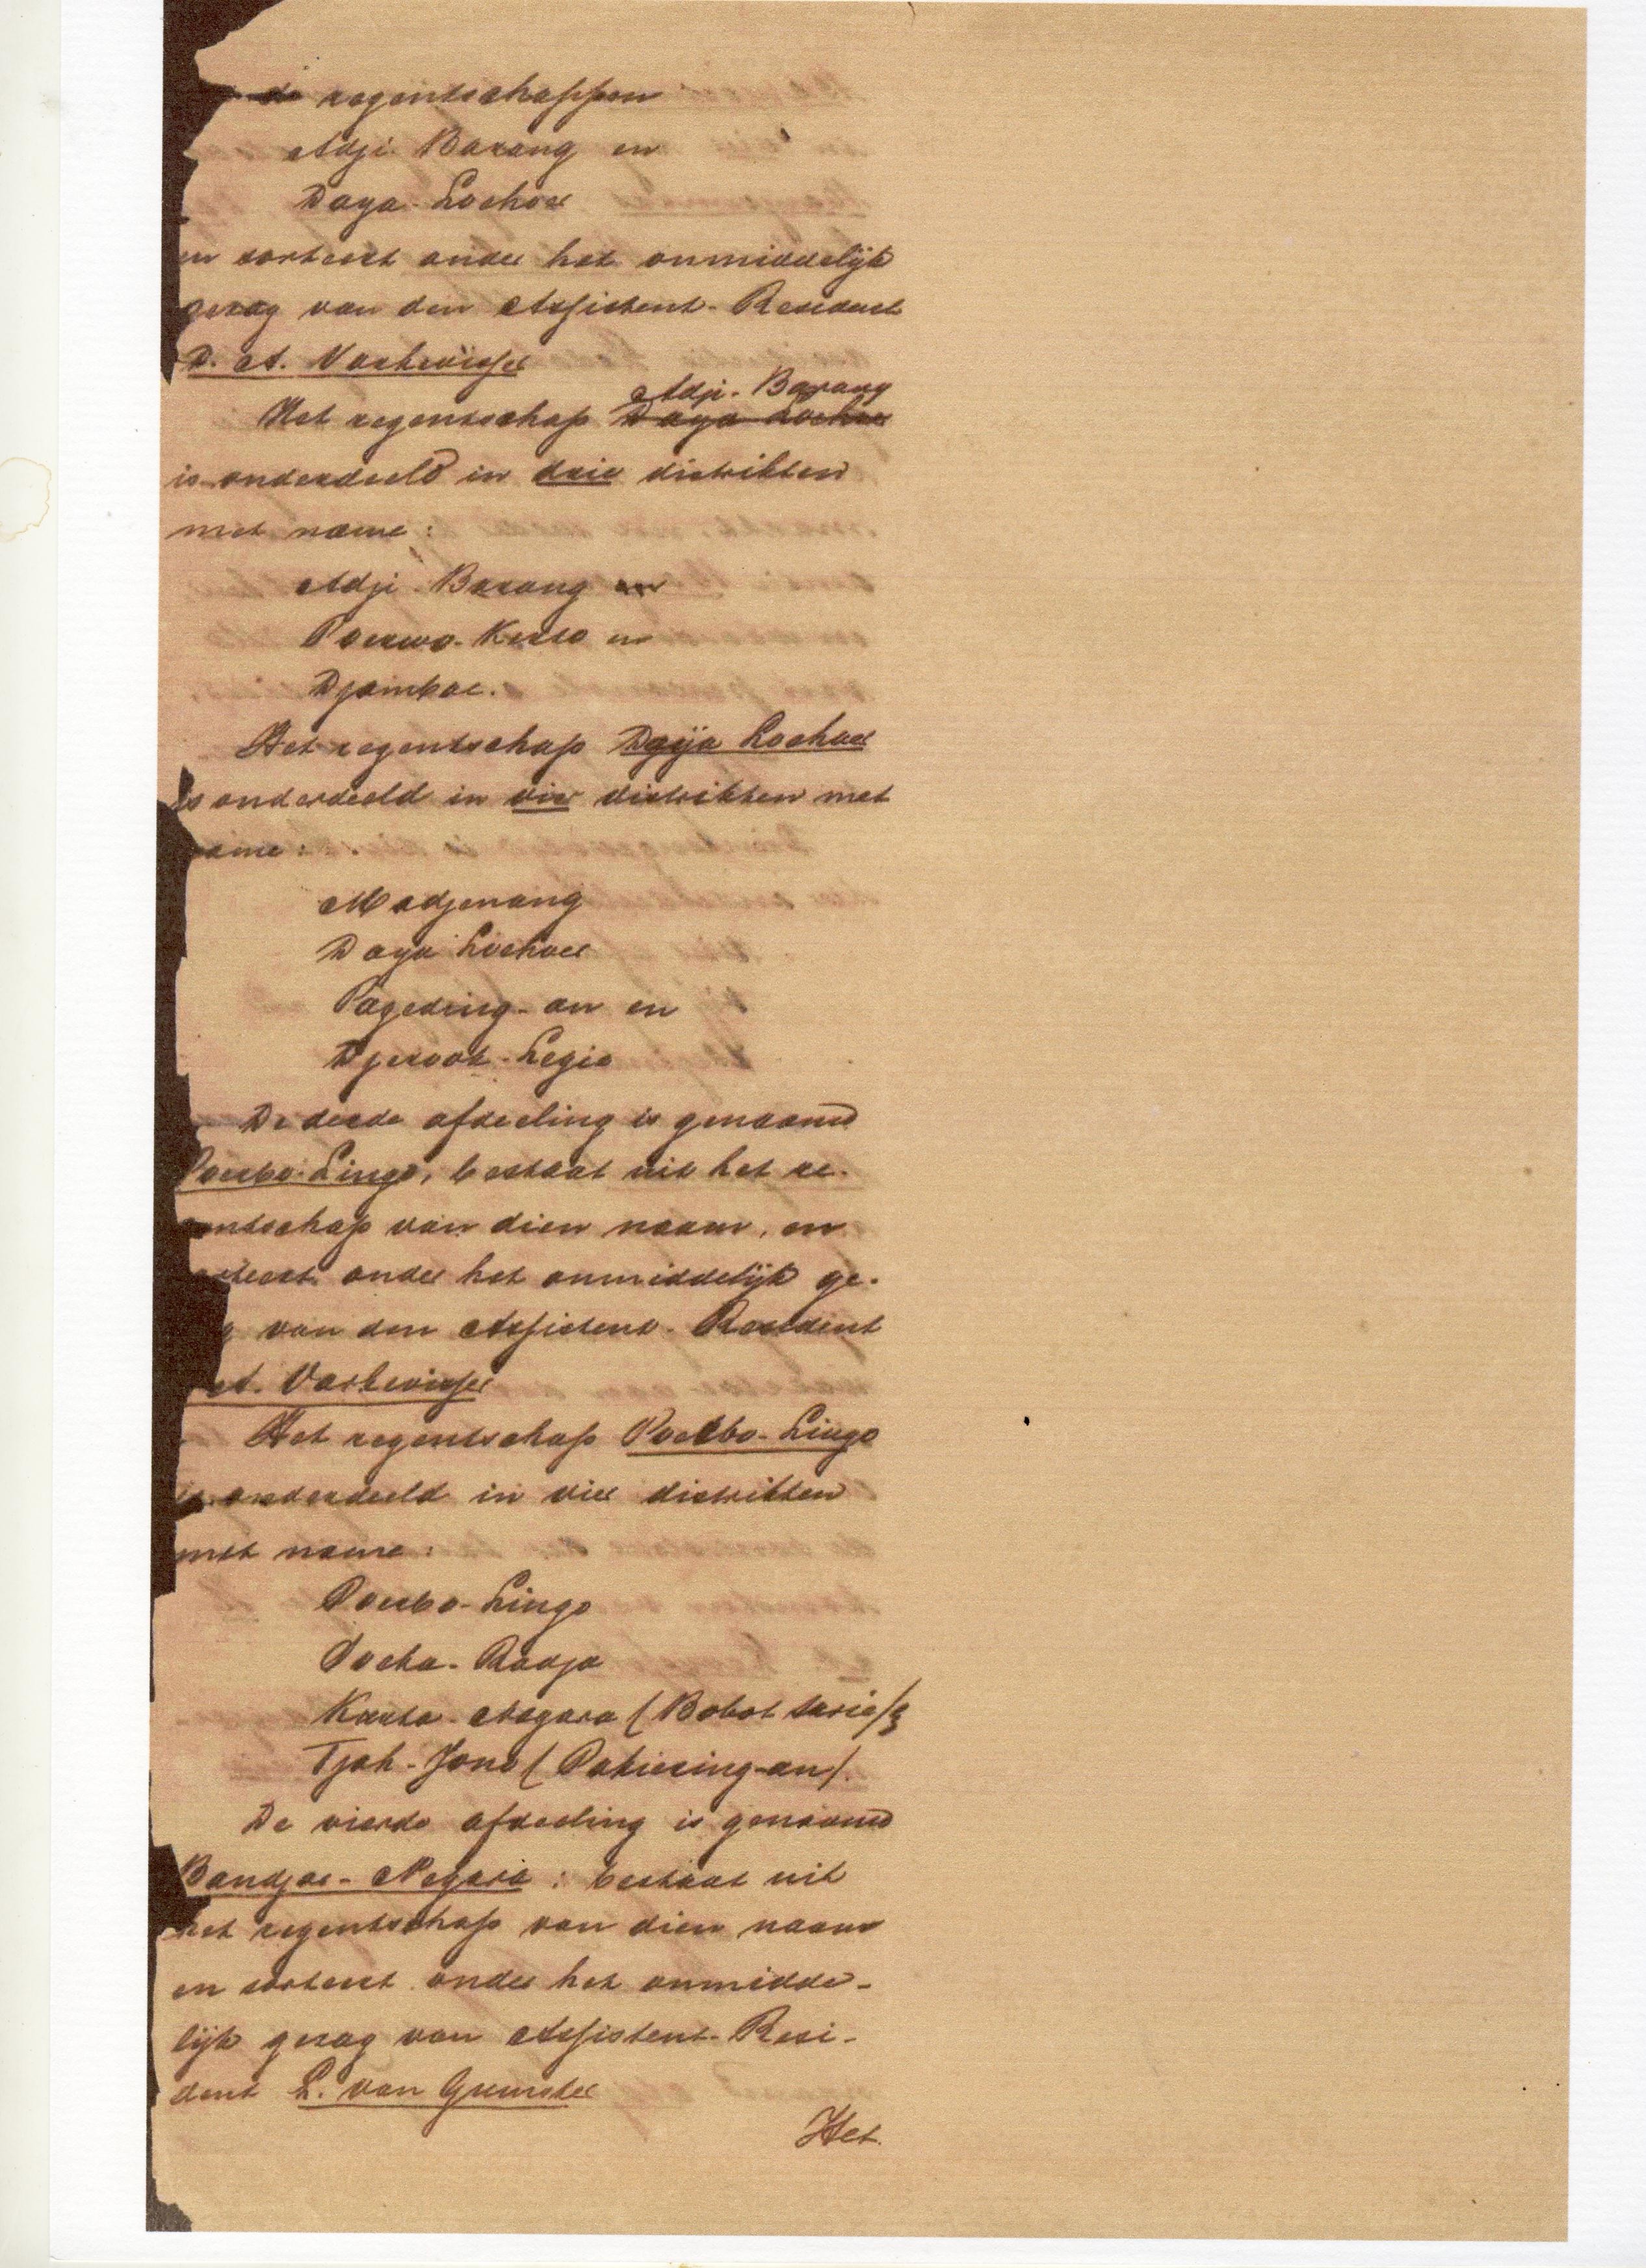 de regentschappen
Adji Barang en
Daya-Loehoer
en sorteert onder het onmiddelijk
gezag van den Assistent-Resident
D. A. Varkevisser
Adji-Barang
Het regentschap Daya Loehoer
is onderdeeld in drie distrikten
met name:
Adji Barang en
Poerwo-Kerto en
Djamboe.
Het regentschap Daija Loehoer
is onderdeeld in vier distrikten met
name:
Madjenang
Daya Loehoer
Pageding-an en
Djeroek-Legie
De derde afdeeling is genaamd
Poerbo-Lingo, bestaat uit het re-
gentschap van dien naam, en
sorteert onder het onmiddelijk ge-
g van den Assistent-Resident
A. Varkevisser
Het regentschap Poerbo-Lingo
is onderdeeld in vier distrikten
met name:
Poerbo-Lingo
Soeka-Radja
Karta-Negara (Bobot sarie/
Tjah-Jono (Pakiering-an/.
De vierde afdeeling is genaamd
Bandjar-Negara: bestaat uit
het regentschap van dien naam
en sorteert onder het onmidde-
lijk gezag van Assistent-Resi-
dent L. van Gunster
Het.